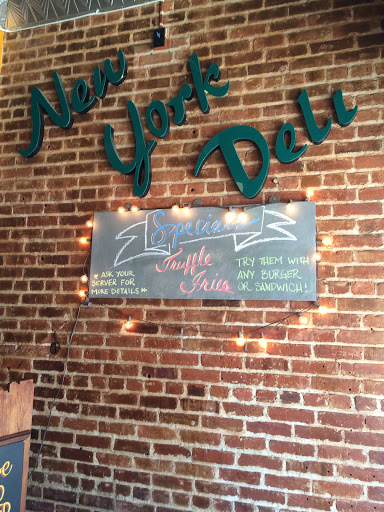 New
York
Deli
Specials
Truffle
Fries
* ASK YOUR
SERVER FOR
MORE DETAILS *
TRY THEM WITH
ANY BURGER
OR SANDWICH!